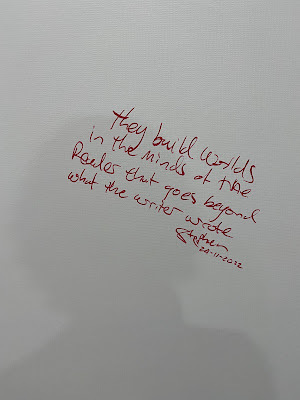 They build worlds
in the minds of the
Reader that goes beyond
what the writer wrote
Stephen